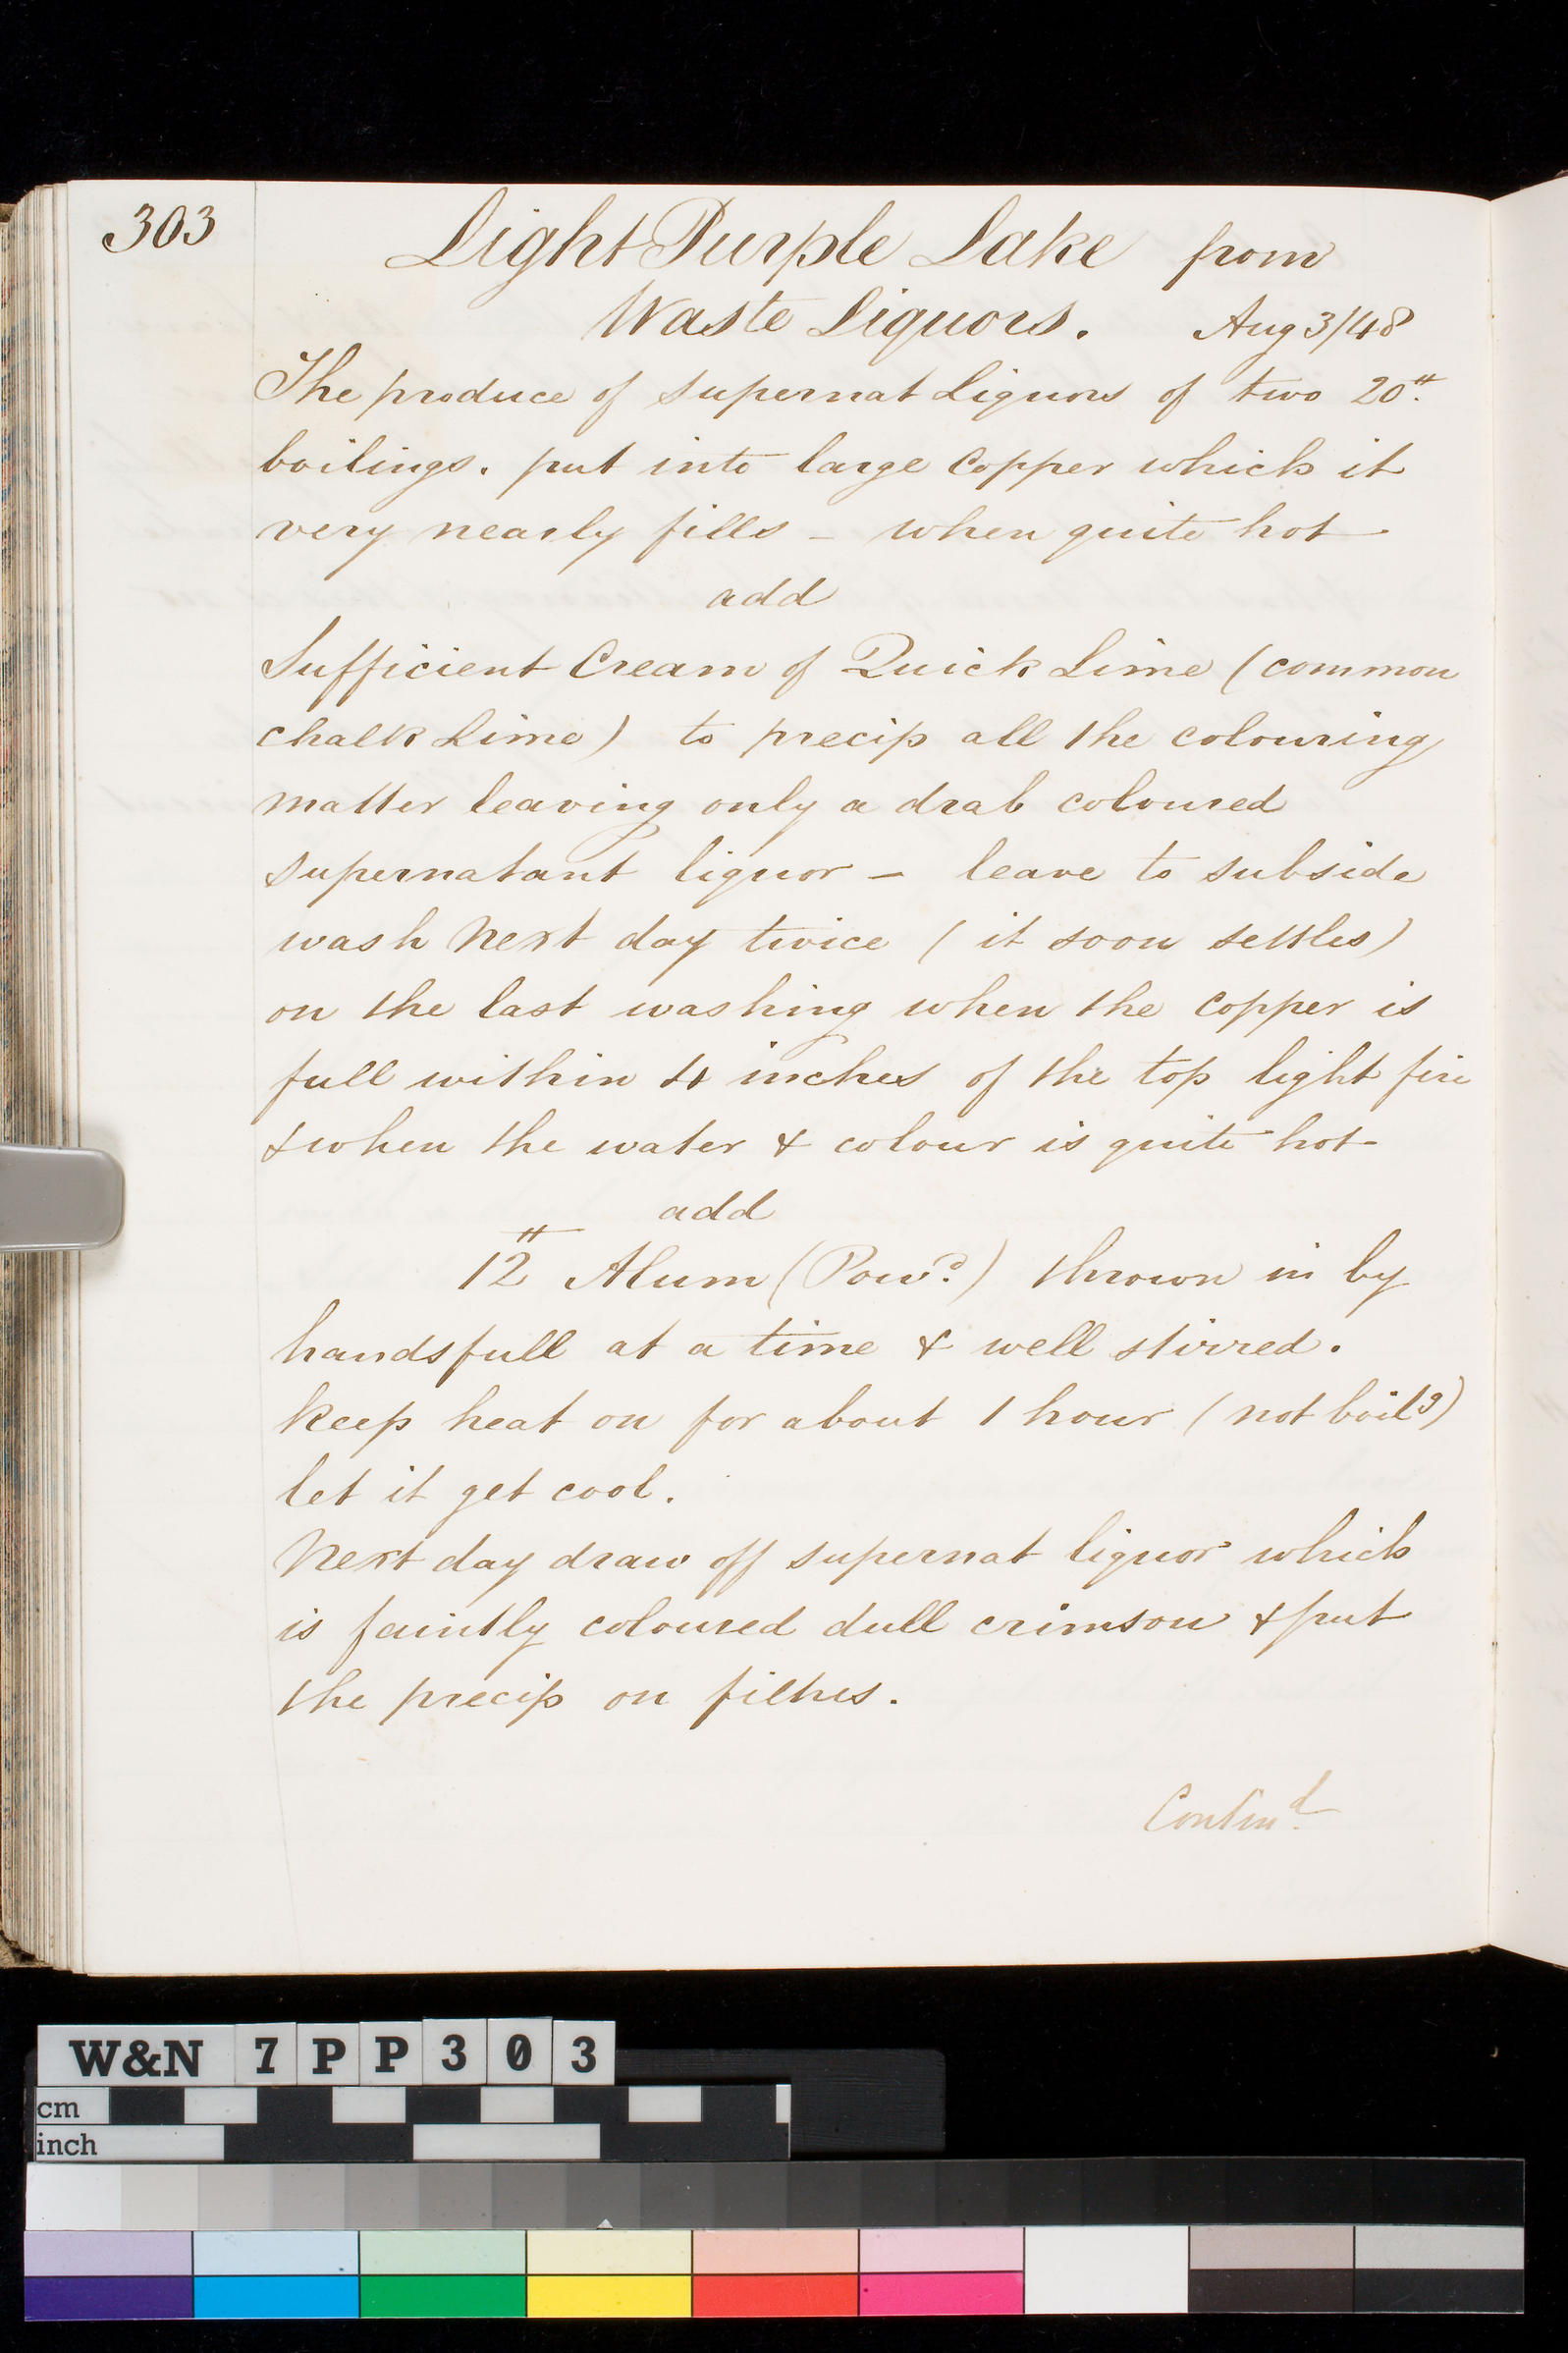 303
Light Purple Lake from
Waste Liquors. Aug 3/48
The produce of supernat Liquors of two 20℔.
boilings. put into large Copper which it
very nearly fills – when quite hot
add
Sufficient Cream of Quick Lime (common
chalk Lime) to precip all the colouring
matter leaving only a drab coloured
supernatant liquor – leave to subside
wash Next day twice (it soon settles)
on the last washing when the Copper is
full within 4 inches of the top light fire
& when the water & colour is quite hot
add
12 ℔ Alum (Powd.) thrown in by
handsfull at a time & well stirred.
Keep heat on for about 1 hour (not boilg)
let it get cool.
Next day draw off supernat liquor which
is faintly coloured dull crimson & put
the precip on filters.
Contind.
W&N 7PP303
cm
inch